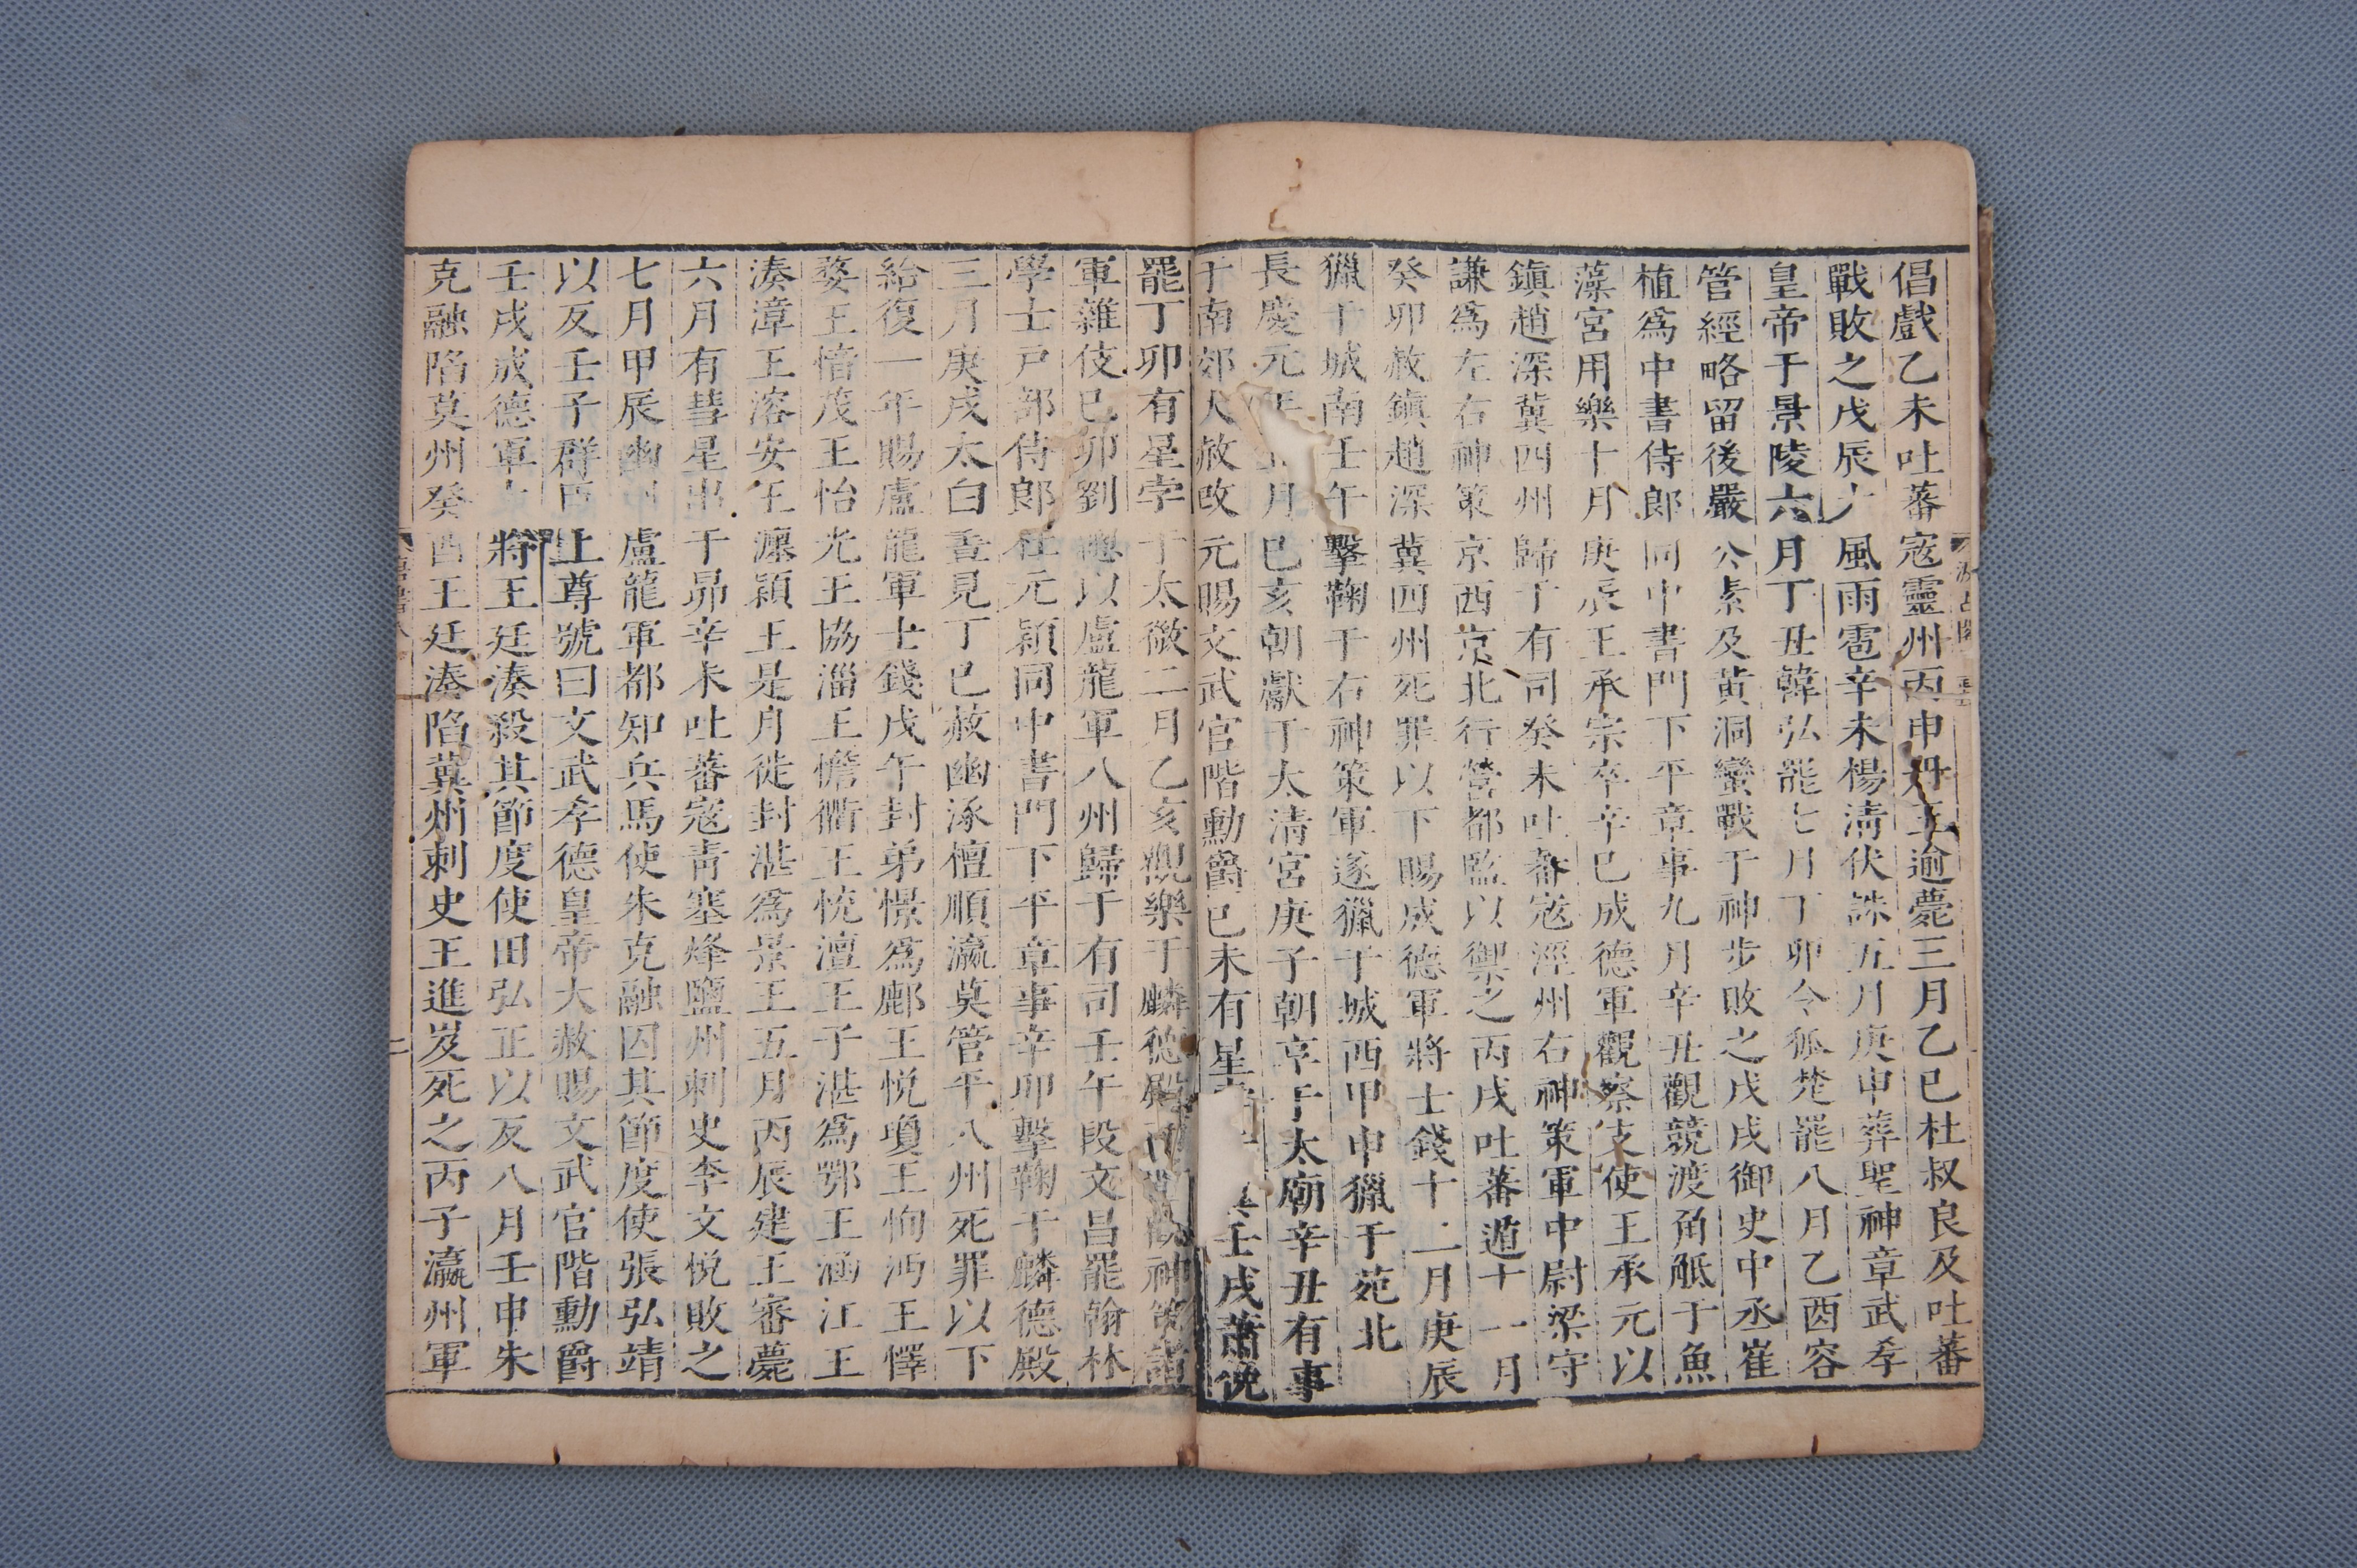 倡戲乙未吐蕃寇靈州丙申丹王逾薨三月乙巳杜叔良及吐蕃
戰敗之戊辰大風雨雹辛未楊清伏誅五月庚申葬聖神章武孝
皇帝于景陵六月丁丑韓弘罷七月丁卯令狐楚罷八月乙酉容
管經略留後嚴公素及黃洞蠻戰于神步敗之戊戌御史中丞崔
植爲中書侍郎同中書門下平章事九月辛丑觀競渡角觝于魚
藻宮用樂十月庚辰王承宗卒辛巳成德軍觀察支使王承元以
鎮趙深冀四州歸于有司癸未吐蕃寇涇州右神策軍中尉梁守
謙爲左右神策京西京北行營都監以禦之丙戌吐蕃遁十一月
癸卯赦鎮趙深冀四州死罪以下賜成德軍將士錢十二月庚辰
獵于城南壬午擊鞠于右神策軍遂獵于城西甲申獵于苑北
長慶元年正月己亥朝獻于太清宮庚子朝享于太廟辛丑有事
于南郊大赦改元賜文武官階勳爵己未有星壬戌蕭俛
罷丁卯有星孛于太微二月乙亥觀樂于麟德殿神策諸
軍雜伎己卯劉總以盧龍軍八州歸于有司壬午段文昌罷翰林
學士戶部侍郎杜元穎同中書門下平章事辛卯擊鞠于麟德殿
三月庚戌太白晝見丁巳赦幽涿檀順瀛莫管平八州死罪以下
給復一年賜盧龍軍士錢戊午封弟憬爲鄜王悅瓊王恂沔王懌
婺王愔茂王怡光王協淄王憺衢王㤝澶王子湛爲鄂王涵江王
湊漳王溶安王瀍潁王是月徙封湛爲景王五月丙辰建王審薨
六月有彗星出于昴辛未吐蕃寇青塞烽鹽州刺史李文悅敗之
七月甲辰幽州盧龍軍都知兵馬使朱克融囚其節度使張弘靖
以反壬子群臣上尊號曰文武孝德皇帝大赦賜文武官階勳爵
壬戌成德軍大將王廷湊殺其節度使田弘正以反八月壬申朱
克融陷莫州癸酉王廷湊陷冀州刺史王進岌死之丙子瀛州軍
唐書八
二